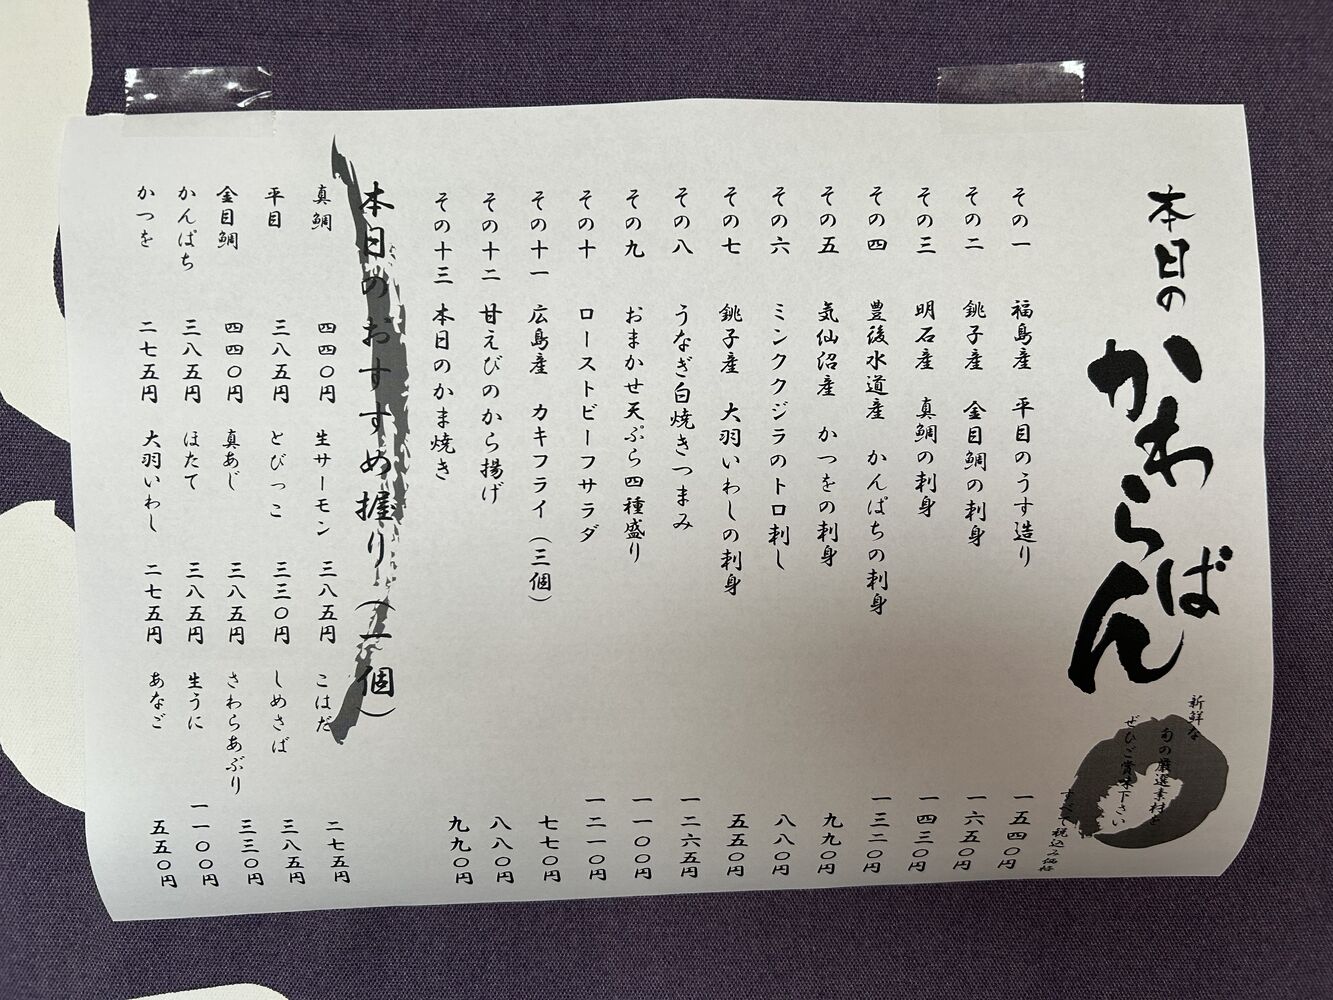 本日の かわらばん
新鮮な
旬の厳選素材を
ぜひご賞味下さい
すべて税込み価格
その一 福島産 平目のうす造り 一五四〇円
その二 銚子産 金目鯛の刺身 一六五〇円
その三 明石産 真鯛の刺身 一四三〇円
その四 豊後水道産 かんぱちの刺身 一三二〇円
その五 気仙沼産 かつをの刺身 九九〇円
その六 ミンククジラのトロ刺し 八八〇円
その七 銚子産 大羽いわしの刺身 五五〇円
その八 うなぎ白焼きつまみ 一二六五円
その九 おまかせ天ぷら四種盛り 一一〇〇円
その十 ローストビーフサラダ 一二一〇円
その十一 広島産 カキフライ（三個） 七七〇円
その十二 甘えびのから揚げ 八八〇円
その十三 本日のかま焼き 九九〇円
本日のおすすめ握り（一個）
真鯛 四四〇円 生サーモン 三八五円 こはだ 二七五円
平目 三八五円 とびっこ 三三〇円 しめさば 三八五円
金目鯛 四四〇円 真あじ 三八五円 さわらあぶり 三三〇円
かんぱち 三八五円 ほたて 三八五円 生うに 一一〇〇円
かつを 二七五円 大羽いわし 二七五円 あなご 五五〇円